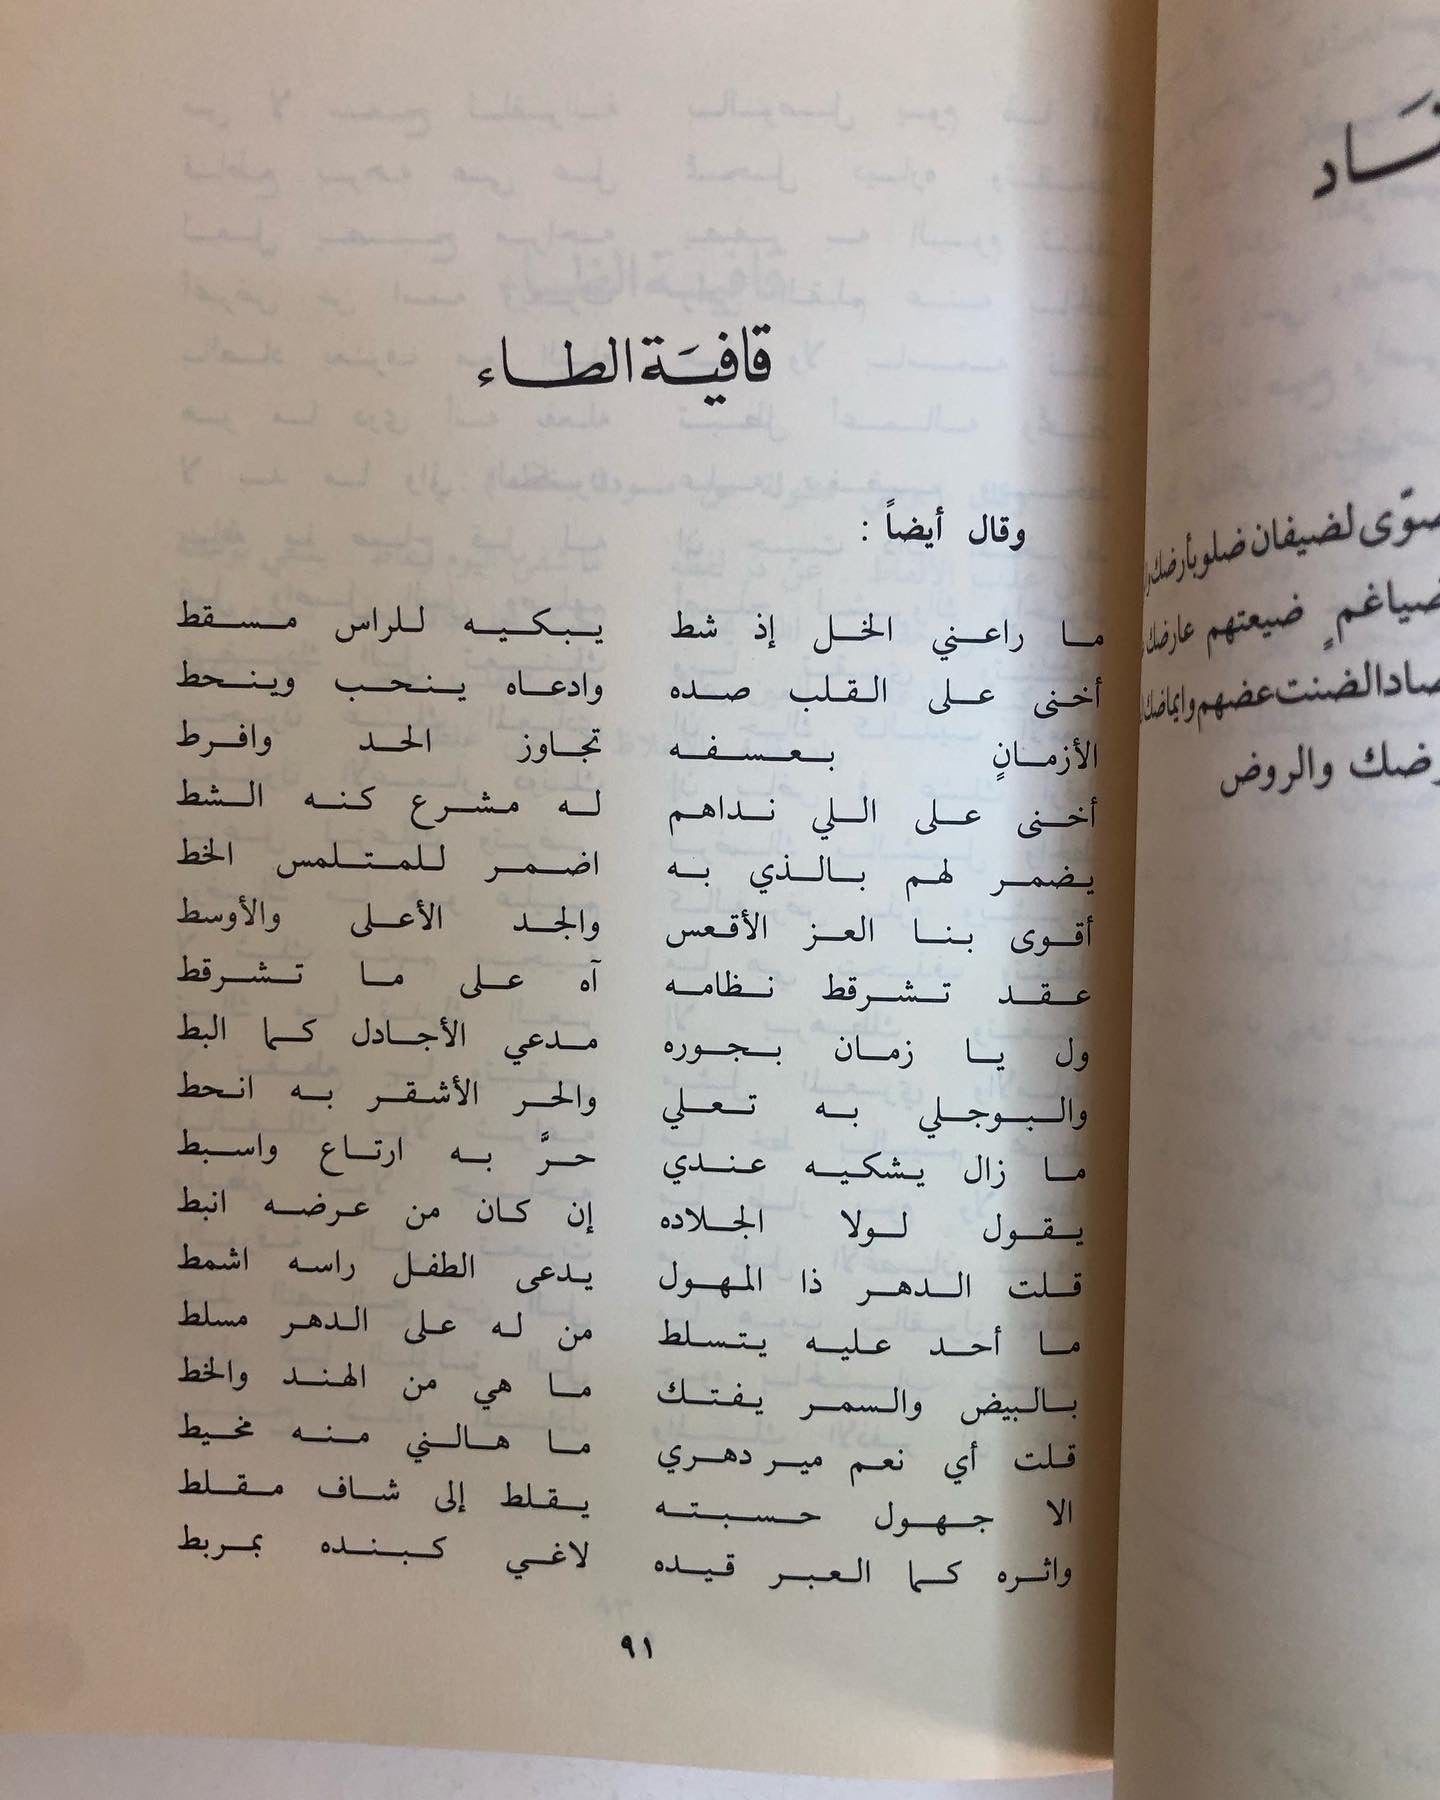 قافية الطاء
وقال أيضاً :
ما راعني الخل إذ شط يبكيه للراس مسقط
أخنى على القلب صده وادعاه ينحب وينحط
الأزمانٍ بعسفه تجاوز الحد وافرط
أخنى على اللي نداهم له مشرع كنه الشط
يضمر لهم بالذي به اضمر للمتلمس الخط
أقوى بنا العز الأقعس والجد الأعلى والأوسط
عقد تشرقط نظامه آه على ما تشرقط
ول يا زمان بجوره مدعي الأجادل كما البط
والبوجلي به تعلي والحر الأشقر به انحط
ما زال يشكيه عندي حرَّ به ارتاع واسبط
يقول لولا الجلاده إن كان من عرضه انبط
قلت الدهر ذا المهول يدعى الطفل راسه اشمط
ما أحد عليه يتسلط من له على الدهر مسلط
بالبيض والسمر يفتك ما هي من الهند والخط
قلت أي نعم مير دهري ما هالني منه مخيط
الا جهول حسبته يقلط إلى شاف مقلط
واثره كما العبر قيده لاغي كبنده بمربط
٩١
صوّى لضيفان ضلو بأرضك
ضياغمٍ ضيعتهم عارضك
صاد الضنت عضهم وايماضك
رضك والروض